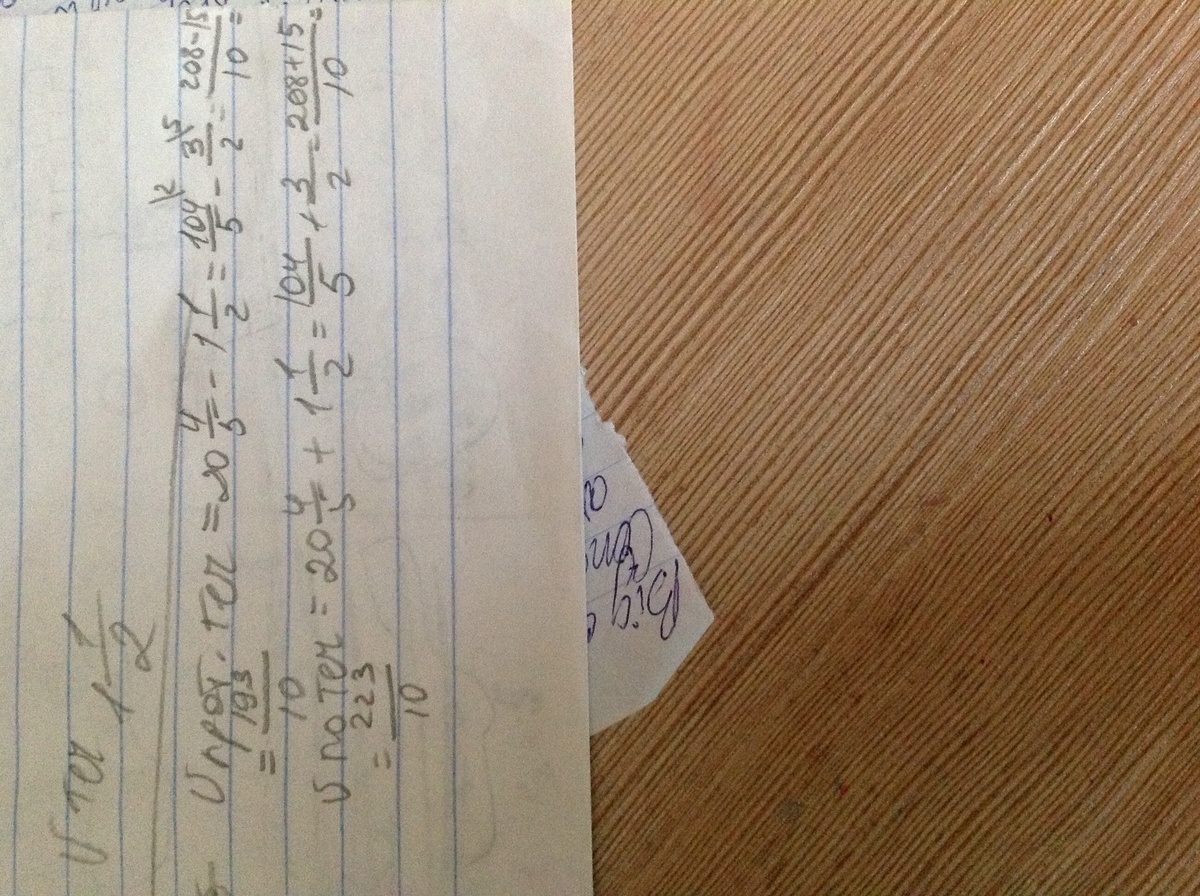 V теч 1 1/2
V прот. теч = 20 4/5 - 1 1/2 = 104/5 \2 - 3/2 \5 = 208-15/10 =
= 193/10
V по теч = 20 4/5 + 1 1/2 = 104/5 + 3/2 = 208+15/10 =
= 223/10
Від